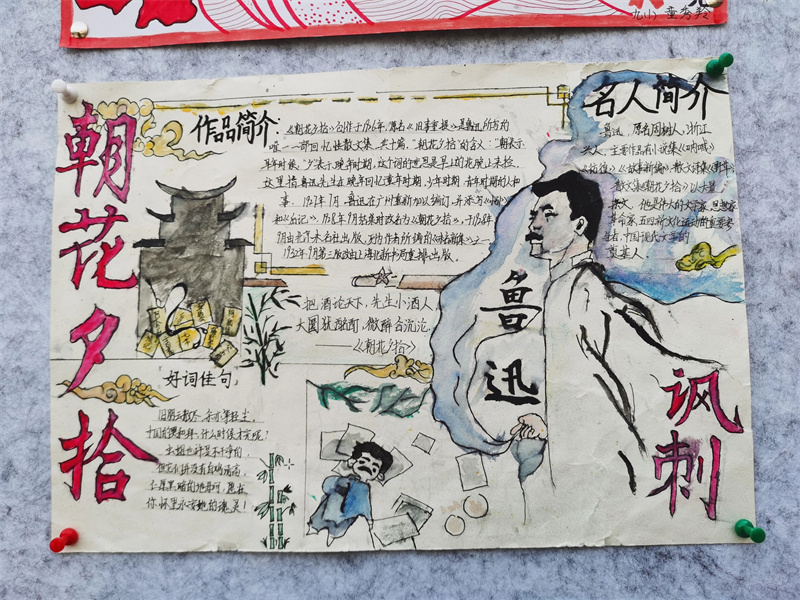 九(1) 童秀羚
朝花夕拾
作品简介:
《朝花夕拾》创作于1926年,原名《旧事重提》是鲁迅所写的
唯一一部回忆性散文集,共十篇,"朝花夕拾"的含义:"朝表示
早年时候,"夕"表示晚年时期,这个词的意思是早上的花晚上来捡,
这里指鲁迅先生在晚年回忆童年时期,少年时期,青年时期的人和
事,1927年7月,鲁迅在广州重新加以编订,并添写《小引》
和《后记》,1928年9月结集时改名为《朝花夕拾》,于1928年
9月由北京未名社出版,列为作者所编的《未名新集》之一,
1932年9月第三版改由上海北新书局重排出版。
名人简介
鲁迅,原名周树人,浙江
人,主要作品有小说集《呐喊》
《彷徨》《故事新编》,散文诗集《野草》
散文集《朝花夕拾》以大量
杂文,他是伟大的文学家,思想家
革命家,五四新文化运动的重要参
与者,中国现代文学的
奠基人
把酒论天下,先生小酒人,
大圜犹酩酊,微醉合沉沦。
——《朝花夕拾》
鲁迅
讽刺
好词佳句
旧朋云散尽,余亦等轻尘,